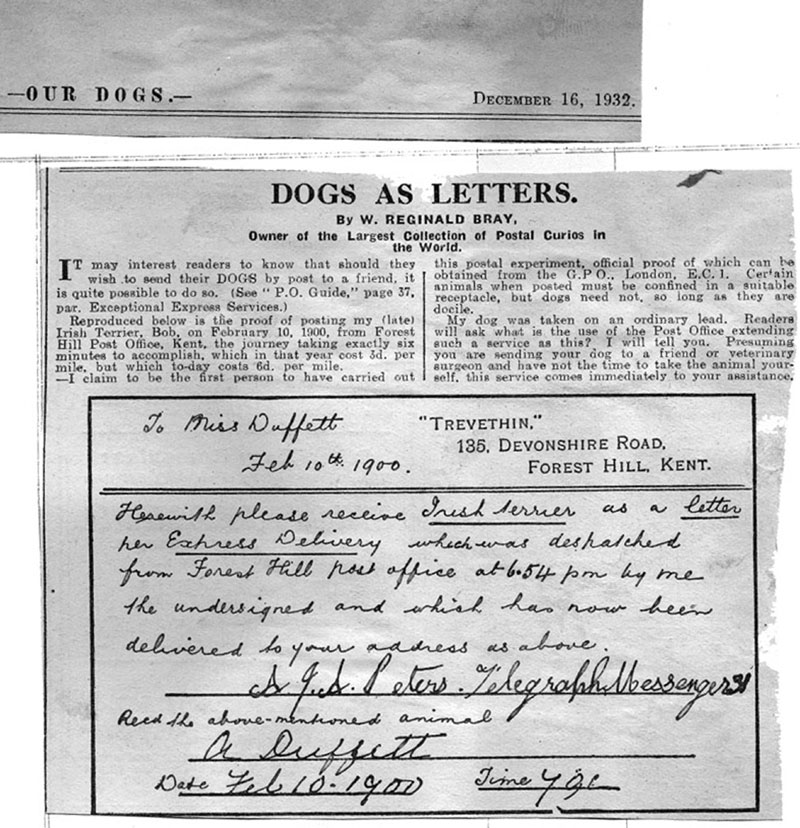 —OUR DOGS.—
DECEMBER 16, 1932.
DOGS AS LETTERS.
By W. REGINALD BRAY,
Owner of the Largest Collection of Postal Curios in
the World.
IT may interest readers to know that should they
wish to send their DOGS by post to a friend, it
is quite possible to do so. (See "P.O. Guide," page 37,
par. Exceptional Express Services.)
Reproduced below is the proof of posting my (late)
Irish Terrier, Bob, on February 10, 1900, from Forest
Hill Post Office, Kent, the journey taking exactly six
minutes to accomplish, which in that year cost 3d. per
mile, but which to-day costs 6d. per mile.
—I claim to be the first person to have carried out
this postal experiment, official proof of which can be
obtained from the G.P.O., London, E.C.1. Certain
animals when posted must be confined in a suitable
receptacle, but dogs need not, so long as they are
docile.
My dog was taken on an ordinary lead. Readers
will ask what is the use of the Post Office extending
such a service as this? I will tell you. Presuming
you are sending your dog to a friend or veterinary
surgeon and have not the time to take the animal your-
self, this service comes immediately to your assistance.
To Miss Duffett
Feb 10th. 1900.
"TREVETHIN,"
135, DEVONSHIRE ROAD,
FOREST HILL, KENT.
Herewith please receive Irish terrier as a letter
per Express Delivery which was despatched
from Forest Hill post office at 6.54 pm by me
the undersigned and which has now been
delivered to your address as above.
A. J. A. Peters. Telegraph Messenger 31
Recd the above-mentioned animal
A Duffett
Date Feb 10-1900 Time